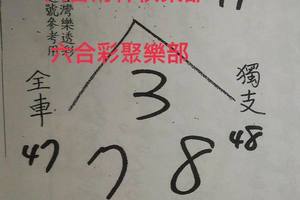 台灣樂透彩
號參考用
六合彩聚樂部
全車
獨支
3
47
7
8
48